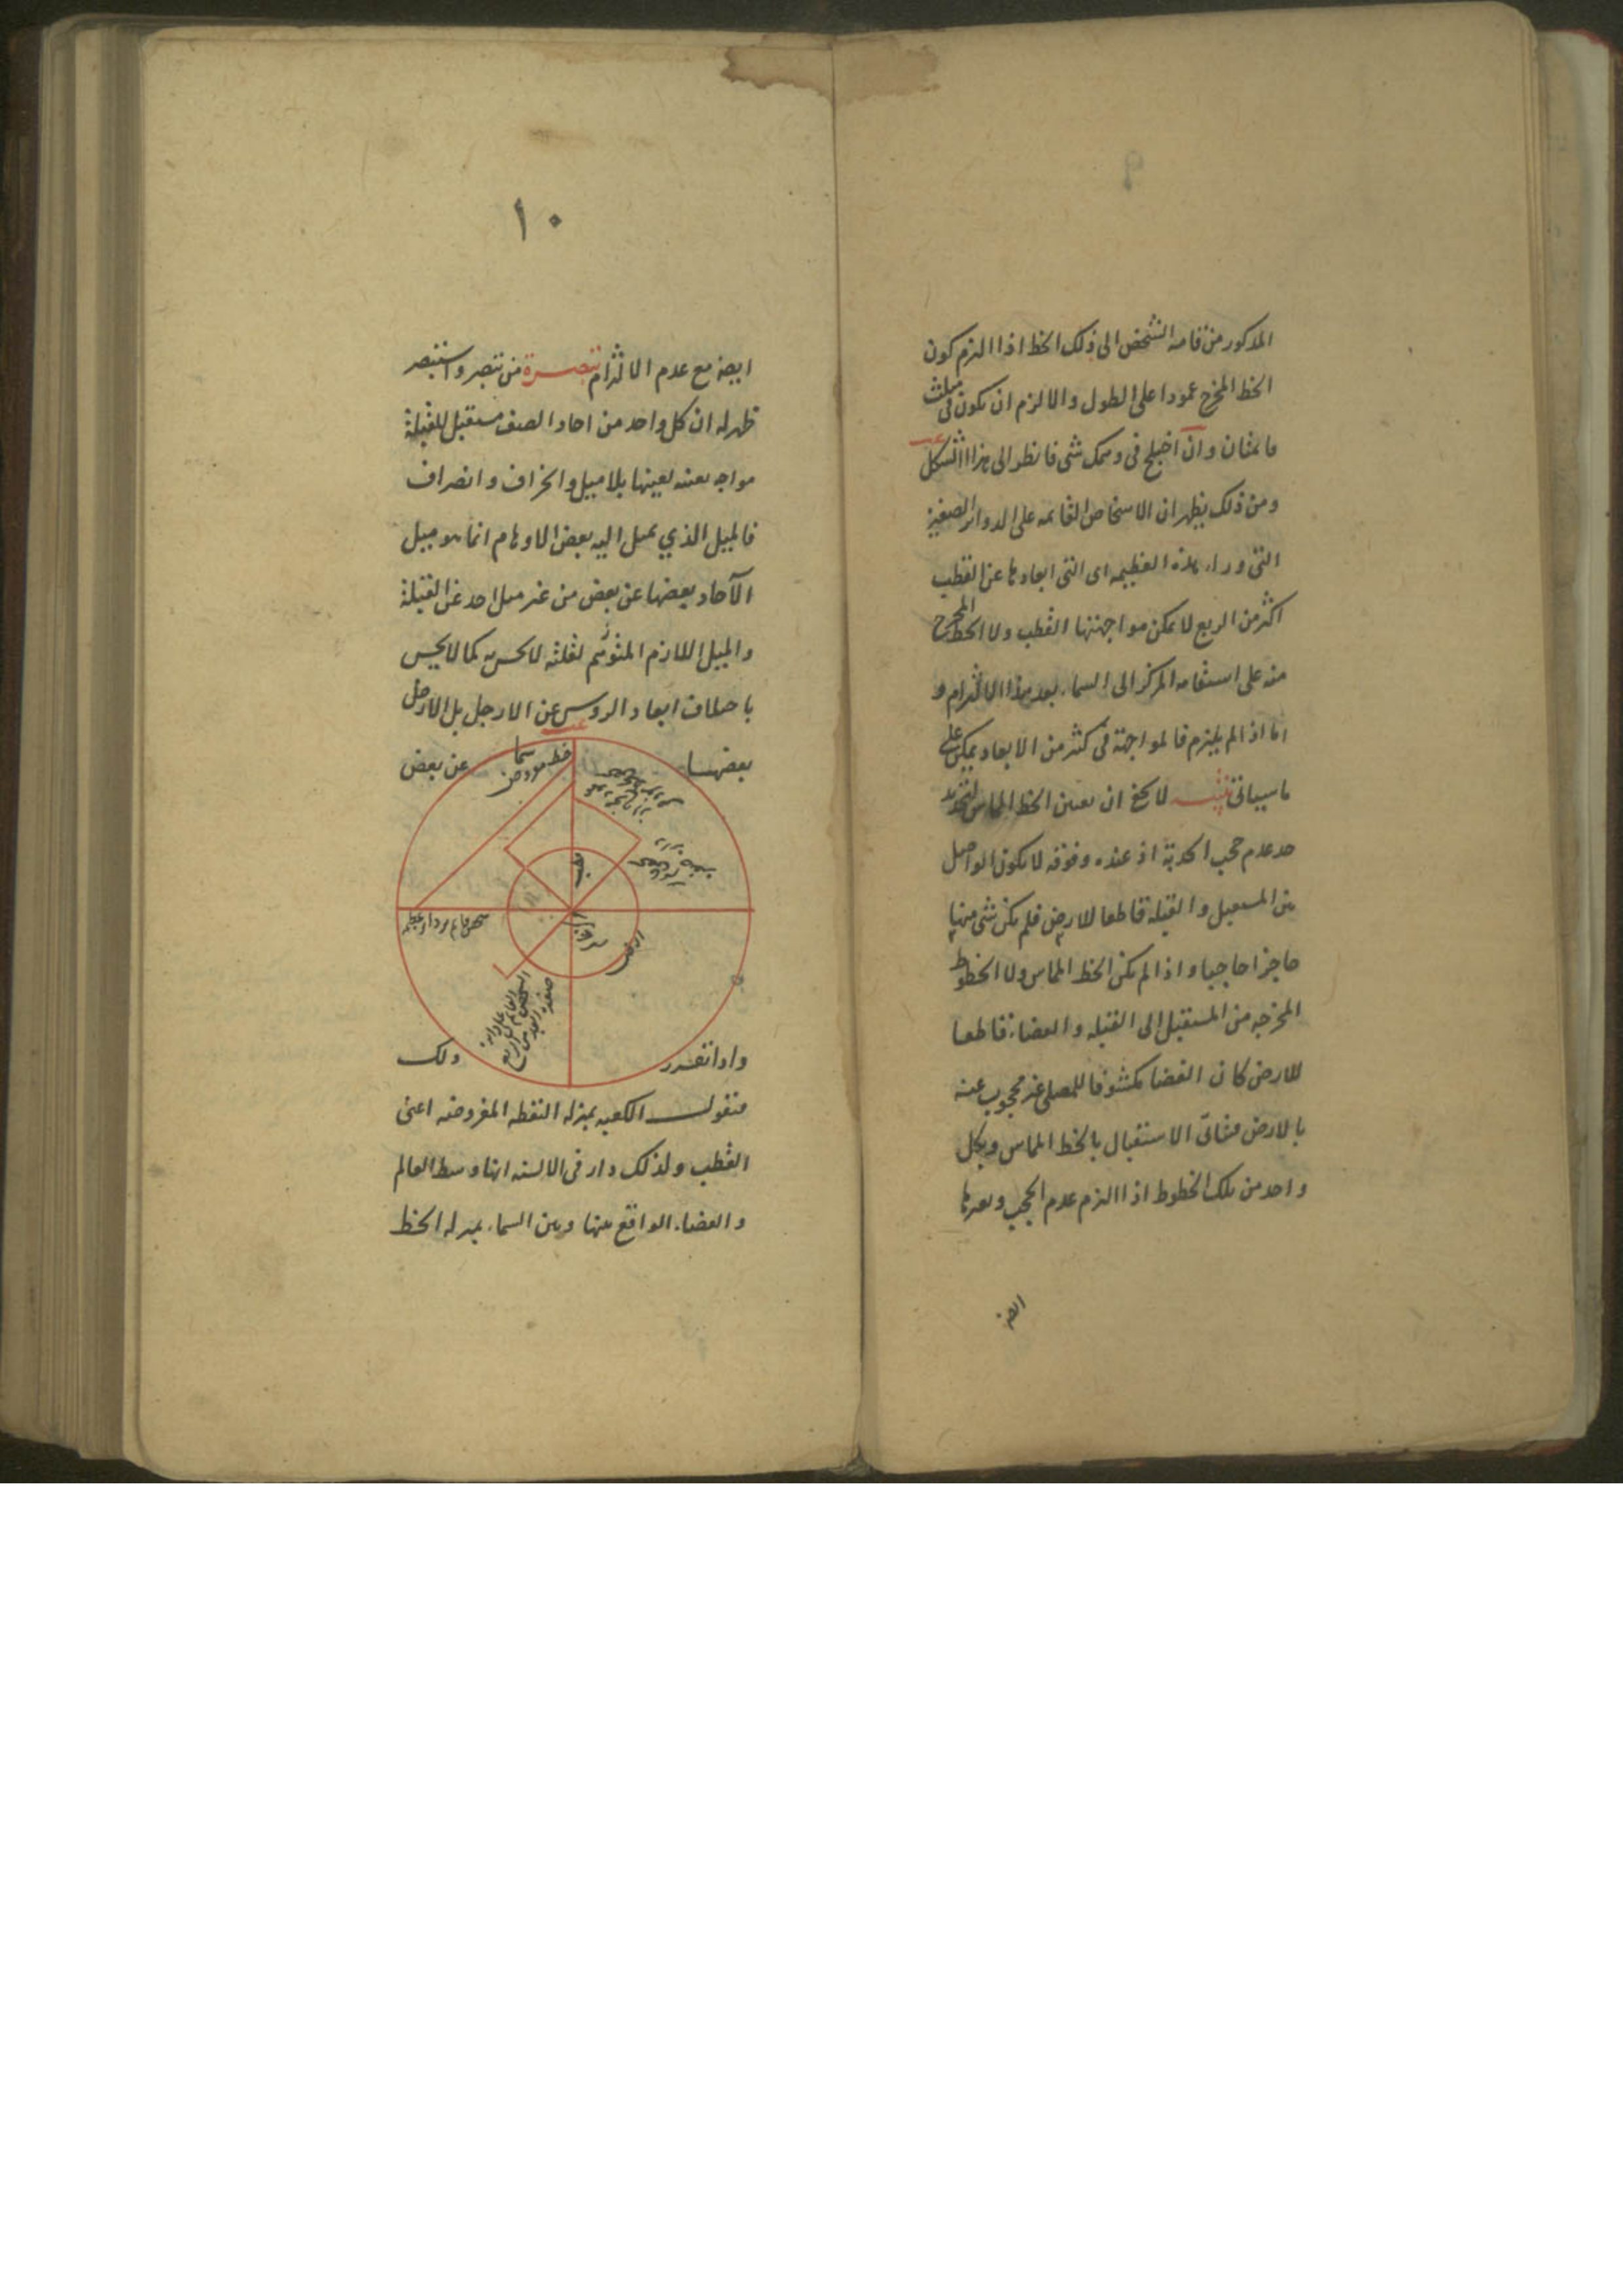 ٩
المذكور من قامة الشخص الى ذلك الخط اذا التزم كون
الخط المخرج عمودا على الطول والا لزم ان يكون فى مثلث
قائمتان وان اختلج فى وهمك شى فانظر الى هذا الشكل
ومن ذلك يظهر ان الاشخاص القائمه على الدوائر الصغيرة
التى وراء هذه العظيمه اى التى ابعادها عن القطب
اكثر من الربع لا يمكن مواجهتها القطب ولا الخط المخرج
منه على استقامه المركز الى السماء بعد هذا الالتزام و
اما اذا لم يلتزم فالمواجهة فى كثير من الابعاد يمكن على
ما سياتى تنبيه لا يخفى ان تعين الخط المماس لتحديد
حد عدم حجب الحدبة اذ عنده وفوقه لا يكون الواصل
بين المستقبل والقبلة قاطعا للارض فلم يكن شى منها
حاجزا حاجبا واذا لم يكن الخط المماس ولا الخطوط
المخرجه من المستقبل الى القبله والفضاء قاطعا
للارض كان الفضا مكشوفا للمصلى غير محجوب عنه
بالارض فيتاتى الاستقبال بالخط المماس وبكل
واحد من تلك الخطوط اذا التزم عدم الحجب وبغيرها
ايضا
١٠
ايضا مع عدم الالتزام تبصرة من تبصر واستبصر
ظهر له ان كل واحد من احاد الصف مستقبل للقبلة
مواجه بعينه لعينها بلا ميل وانحراف وانصراف
فالميل الذي يميل اليه بعض الاوهام انما هو ميل
الآحاد بعضها عن بعض من غير ميل احد عن القبلة
والميل اللازم المتوهم لقلته لا يحس به كما لا يحس
باختلاف ابعاد الروس عن الارجل بل الارجل
بعضها عن بعض
سما
خط مفروض
قطب
مركز الارض
الارض
شخص قائم بر دائره عظيمه
الشخص القائم على دائرة
صغيره ابعد من الربع
واذا تقرر ذلك
فنقول الكعبه بمنزله النقطه المفروضه اعنى
القطب ولذلك دار فى الالسنه انها وسط العالم
والفضاء الواقع بينها وبين السماء بمنزله الخط